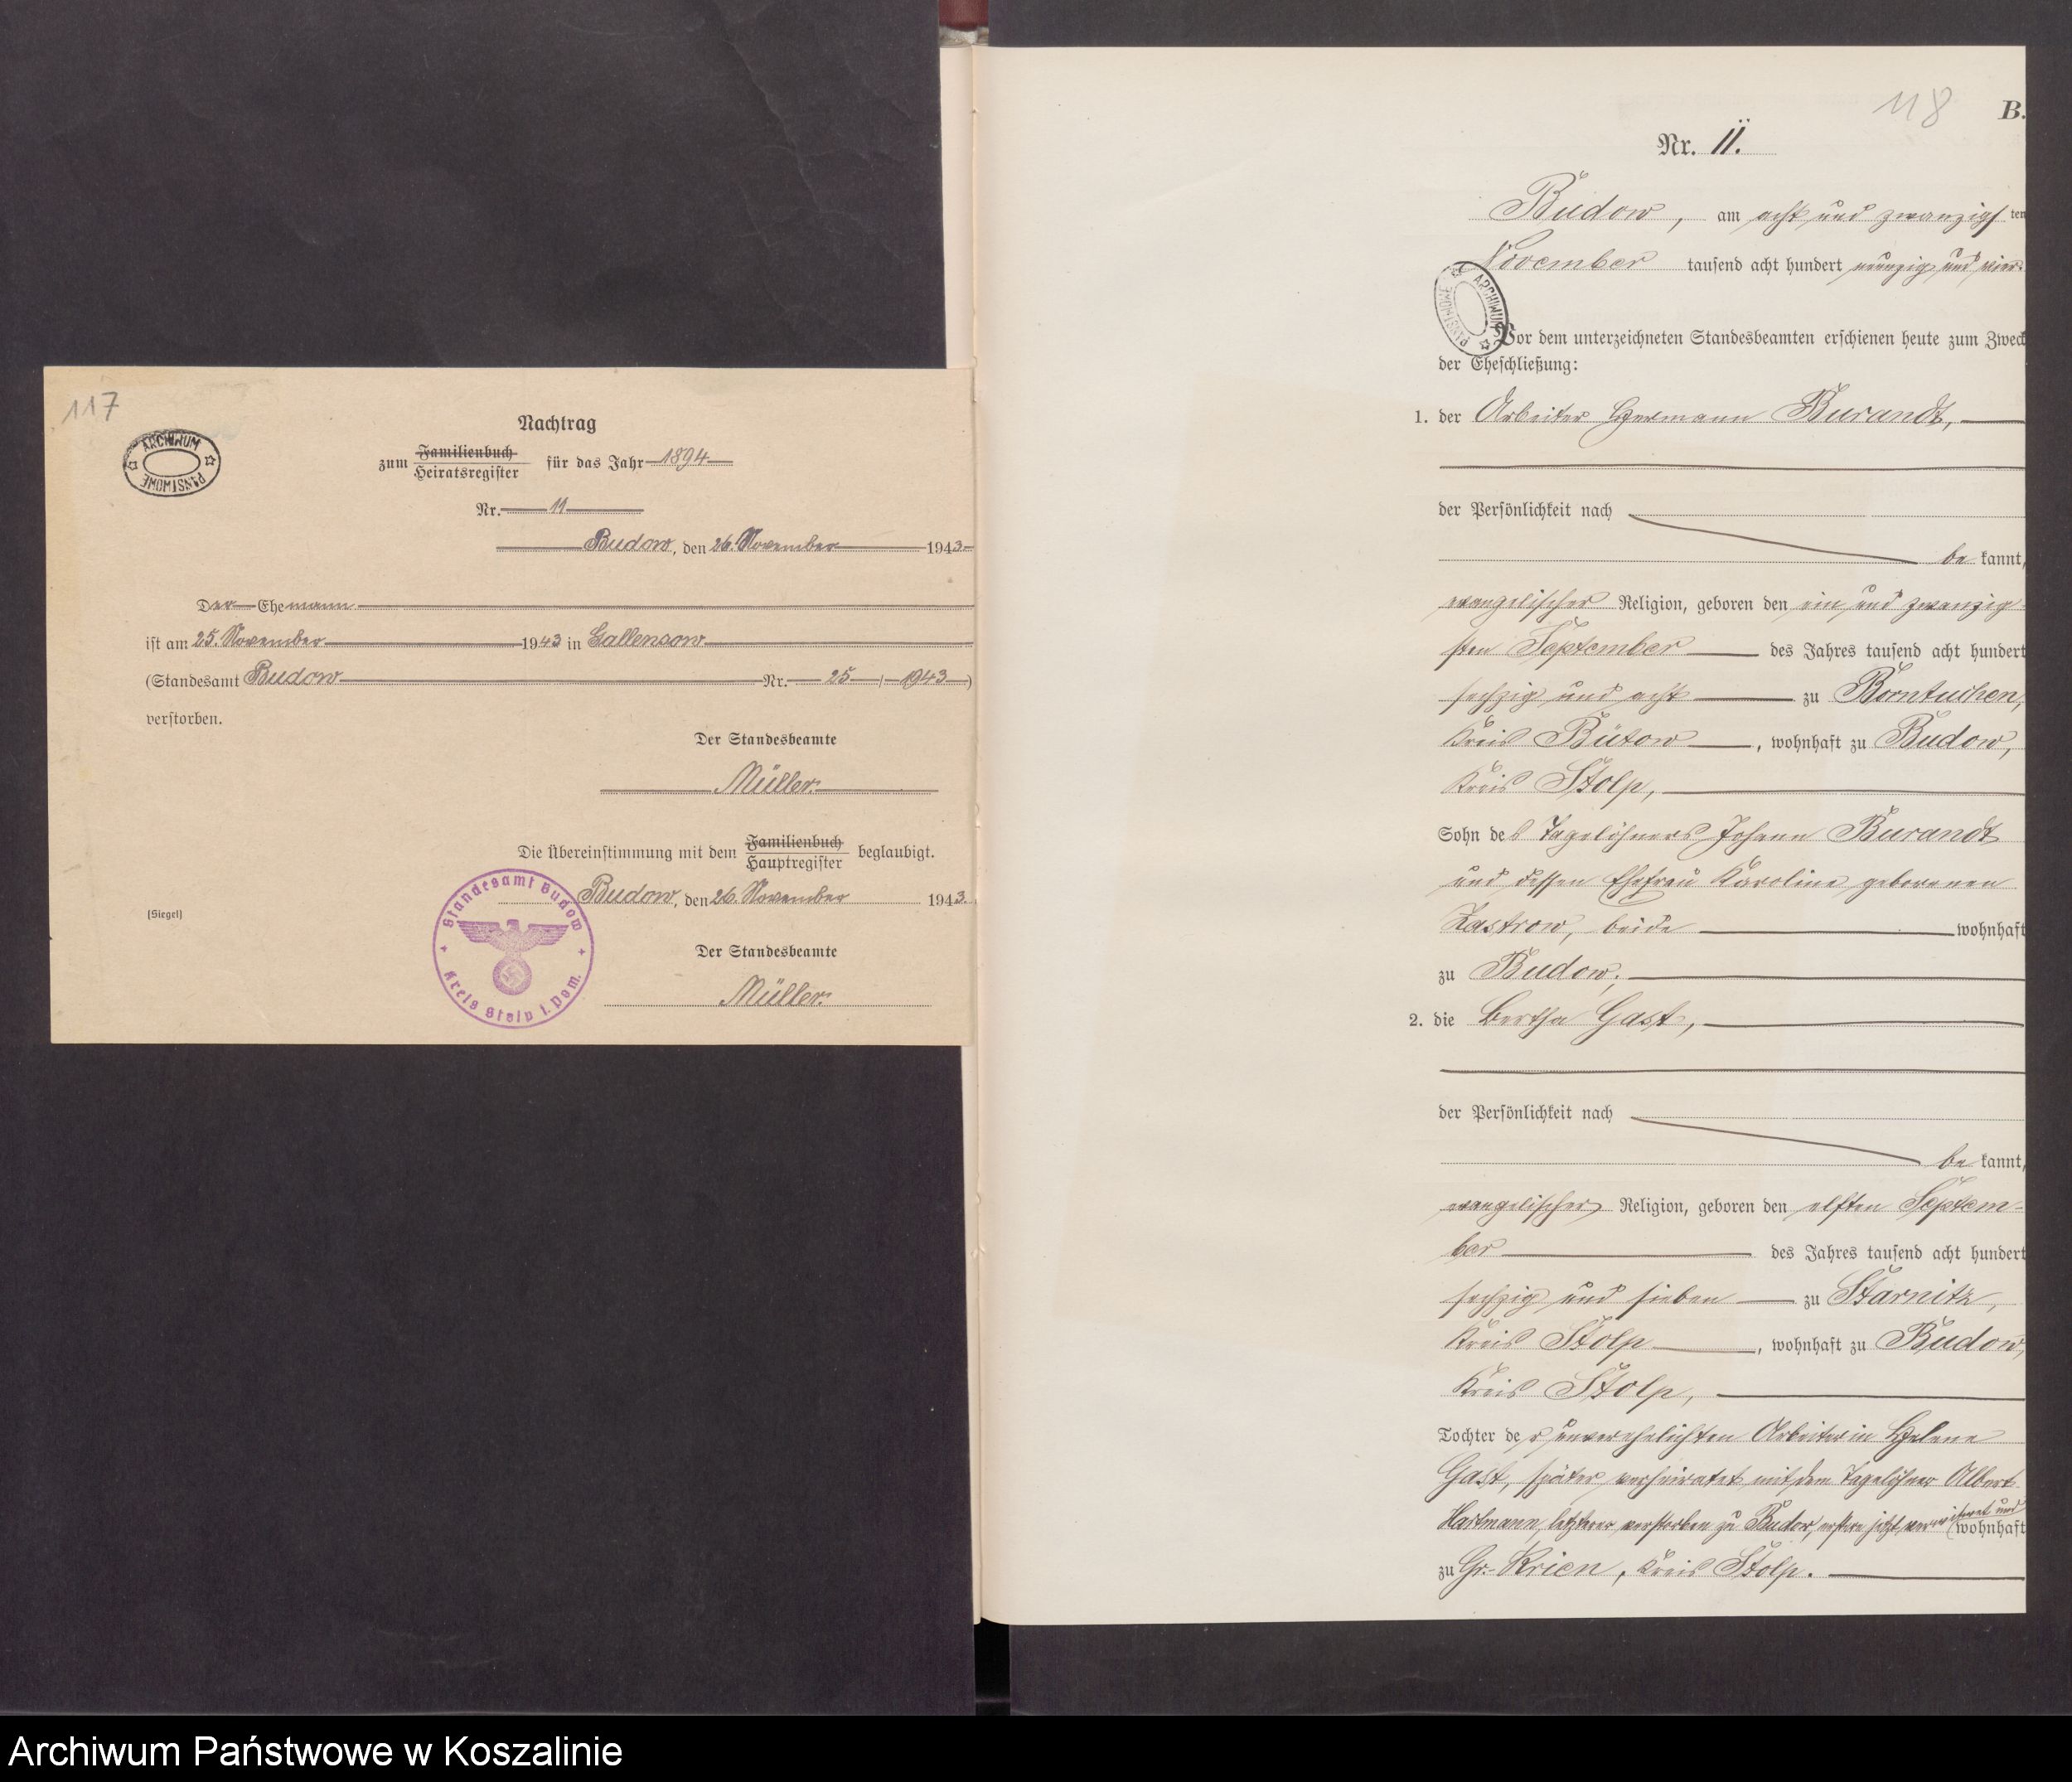 117
ARCHIWUM PAŃSTWOWE
Nachtrag
zum Familienbuch Heiratsregister für das Jahr 1894
Nr. 11
Budow, den 26. November 1943
Der Ehemann
ist am 25. November 1943 in Gallensow
(Standesamt Budow Nr. 25 / 1943)
verstorben.
Der Standesbeamte
Müller.
Die Übereinstimmung mit dem Familienbuch Hauptregister beglaubigt.
Budow, den 26. November 1943.
(Siegel)
Standesamt Budow
Kreis Stolp i. Pom.
Der Standesbeamte
Müller.
118
B.
Nr. 11.
Budow, am acht und zwanzigsten
November tausend acht hundert neunzig und vier
ARCHIWUM PAŃSTWOWE
Vor dem unterzeichneten Standesbeamten erschienen heute zum Zweck
der Eheschließung:
1. der Arbeiter Hermann Burandt,
der Persönlichkeit nach
bekannt,
evangelischer Religion, geboren den ein und zwanzig-
sten September des Jahres tausend acht hundert
sechzig und acht zu Borntuchen,
Kreis Bütow, wohnhaft zu Budow,
Kreis Stolp,
Sohn des Tagelöhners Johann Burandt
und dessen Ehefrau Karoline geborenen
Zastrow, beide wohnhaft
zu Budow;
2. die Bertha Gast,
der Persönlichkeit nach
bekannt,
evangelischer Religion, geboren den elften Septem-
ber des Jahres tausend acht hundert
sechzig und sieben zu Starnitz,
Kreis Stolp, wohnhaft zu Budow,
Kreis Stolp,
Tochter der unverehelichten Arbeiterin Helene
Gast, später verheiratet mit dem Tagelöhner Albert
Hartmann, letzterer verstorben zu Budow, erstere jetzt verwitwet und wohnhaft
zu Gr.-Krien, Kreis Stolp.
Archiwum Państwowe w Koszalinie